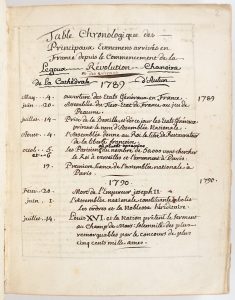 Table Chronologique des
Principaux Evenemens arrivés en
France depuis le Commencement de la
Legoux Revolution. Chanoine
de la Cathédrale d'Autun
1789
May. 4. ouverture des Etats Généraux en France. 1789
juin. 20. Assemblée du Tiers-Etat de France, au jeu de
Paume.
juillet. 14. Prise de la Bastille,
prennent le nom d'Assemblée Nationale.
Aoust. 4. L'Assemblée donne au Roi le titre de Restaurateur
de la liberté françoise.
octob. 5. les Parisiens au nombre de vont chercher
et 6 le Roi à versailles et l'emmenent à Paris.
19. Premiere séance de l'assemblée nationale à
Paris.
1790 1790.
Fevr. 20. Mort de l'Empereur joseph II
juin. L'Assemblée nationale constituante abolie
les ordres et la Noblesse héréditaire
juillet. 14 Louis XVI. et la Nation prêtent le serment
au Champ de Mars: solemnité des plus
remarquables par le concours de plus
cinq cents mille ames.